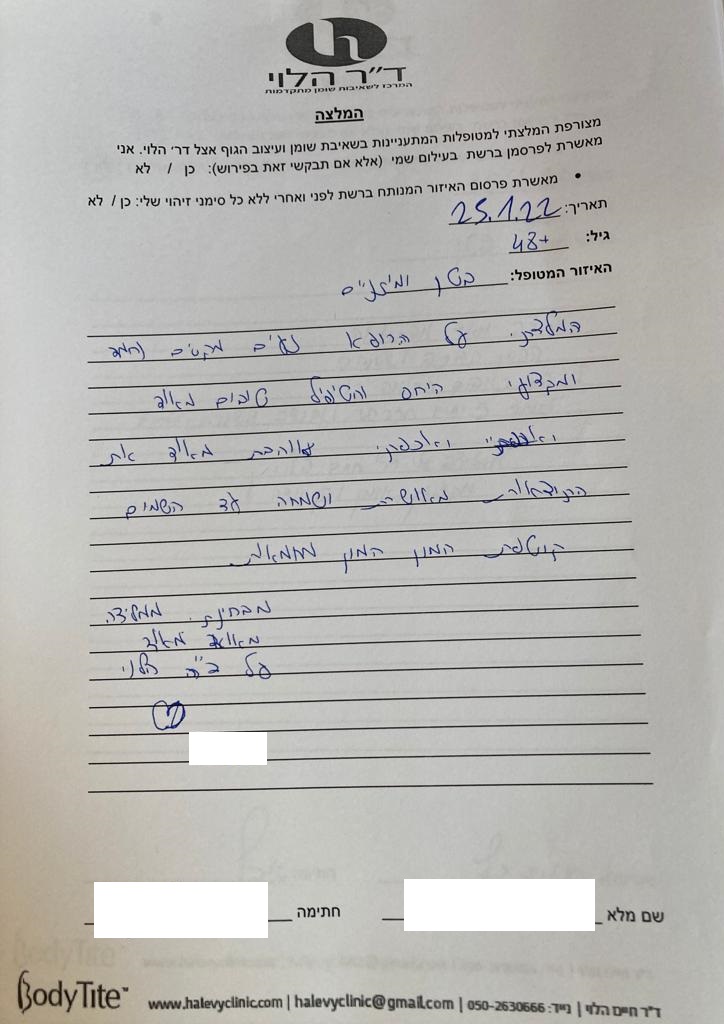 ד״ר הלוי
המרכז לשאיבות שומן מתקדמות
המלצה
מצורפת המלצתי למטופלות המתעניינות בשאיבת שומן ועיצוב הגוף אצל דר׳ הלוי. אני
מאשרת לפרסמן ברשת בעילום שמי (אלא אם תבקשי זאת בפירוש): כן / לא
• מאשרת פרסום האיזור המנותח ברשת לפני ואחרי ללא כל סימני זיהוי שלי: כן / לא
תאריך: 25.1.22
גיל: 48+
האיזור המטופל: בטן ומותניים
המלצתי על הרופא נעים מקסים נחמד
ומקצועי היחס והטיפול טובים מאוד
ואכפתי אוהבת מאוד את
התוצאות מאושרת ושמחה עד השמים
קוטפת המון המון מחמאות
מבחינתי ממליצה
מאוד מאוד
על ד״ר הלוי
שם מלא
חתימה
BodyTite™
ד״ר חיים הלוי | נייד: 050-2630666 | halevyclinic@gmail.com | www.halevyclinic.com